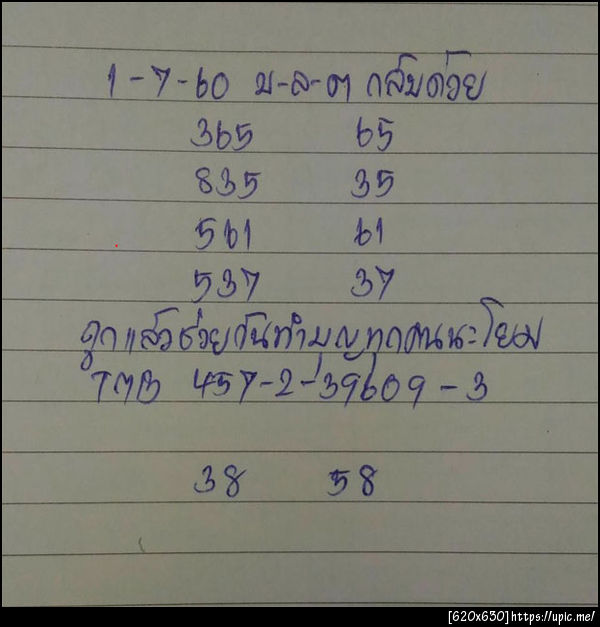 1-7-60 บ-ล-ต กลับด้วย
365 65
835 35
561 61
537 37
ถูกแล้วช่วยกันทำบุญทุกคนนะโยม
TMB 457-2-39609-3
38 58
[620x650]https://upic.me/